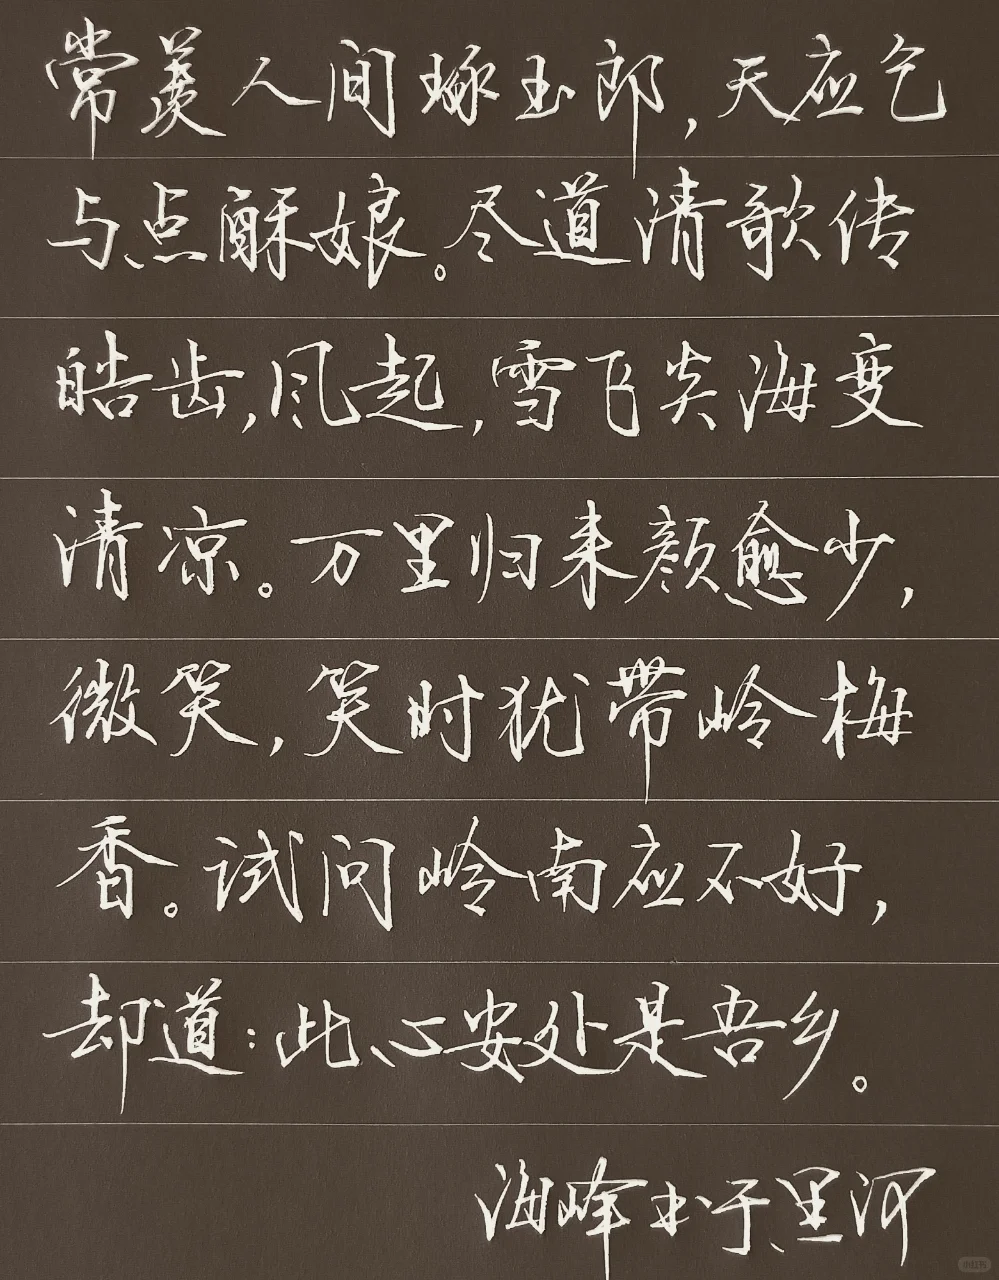 常羡人间琢玉郎,天应乞
与点酥娘。尽道清歌传
皓齿,风起,雪飞炎海变
清凉。万里归来颜愈少,
微笑,笑时犹带岭梅
香。试问岭南应不好,
却道:此心安处是吾乡。
海峰书于黑河
小红书